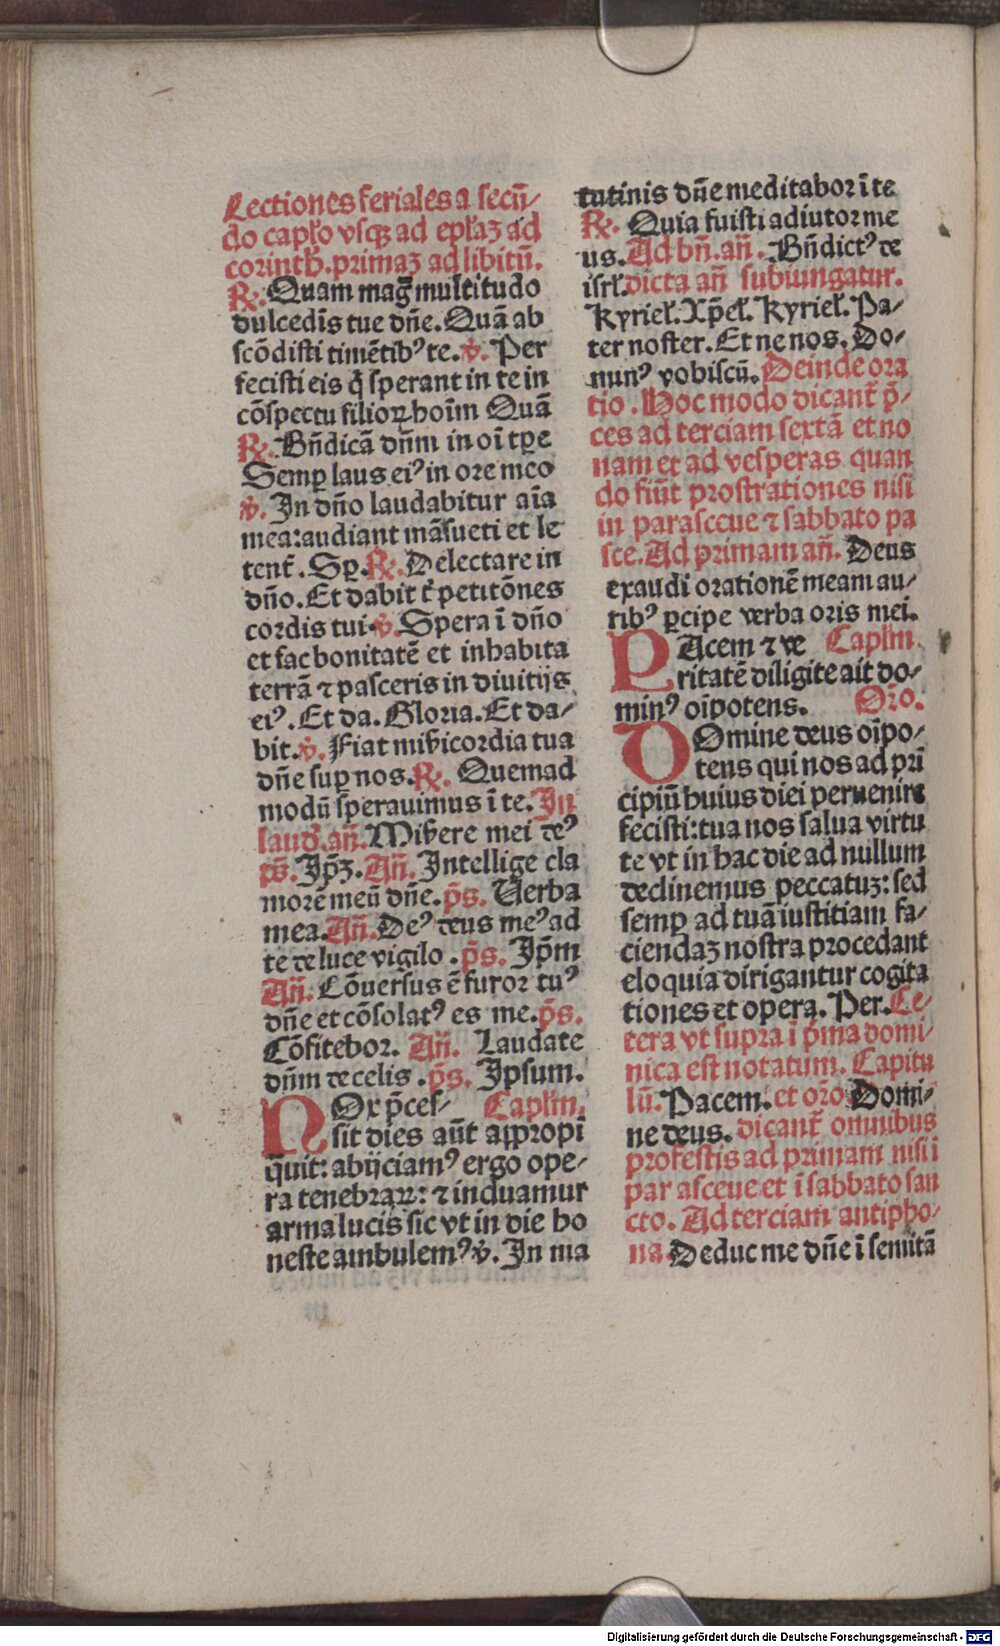 Lectiones feriales a secū-
do capľo vsqꝫ ad epľaꝫ ad
corinth̄. primaꝫ ad libitū.
℟. Quam maḡ multitudo
dulcedīs tue dn̄e. Quā ab
scōdisti timētibꝰ te. ℣. Per
fecisti eis q̇ sperant in te in
cōspectu filioꝝ hoīm Quā
℟. Bn̄dicā dn̄m in oī tꝑe
Semꝑ laus eiꝰ in ore meo
℣. In dn̄o laudabitur aīa
mea: audiant māsueti et le
tent̄. Sꝑ. ℟. Delectare in
dn̄o. Et dabit t̄ petitōnes
cordis tui ℣. Spera ī dn̄o
et fac bonitatē et inhabita
terrā ⁊ pasceris in diuitijs
eiꝰ. Et da. Gloria. Et da-
bit. ℣. Fiat mīhicordia tua
dn̄e suꝑ nos. ℟. Quemad
modū sperauimus ī te. In
laud̄. an̄. Mis̄ere mei deꝰ
ps̄. Ip̄ꝫ. An̄. Intellige cla
morē meū dn̄e. p̄s. Uerba
mea. An̄. Deꝰ deus meꝰ ad
te de luce vigilo. p̄s. Ip̄m
An̄. Cōuersus ē furor tuꝰ
dn̄e et cōsolatꝰ es me. p̄s.
Cōfitebor. An̄. Laudate
dn̄m de celis. p̄s. Ipsum.
NOx p̄ces- Capľm.
sit dies aūt appropi
q̄uit: abijciamꝰ ergo ope-
ra tenebraꝝ: ⁊ induamur
arma lucis sic vt in die ho
neste ambulemꝰ ℣. In ma
tutinis dn̄e meditabor ī te
℟. Quia fuisti adiutor me
us. Ad bn̄. an̄. Bn̄dictꝰ de
isrľ. dicta an̄ subiungatur.
Kyrieľ. Xp̄eľ. Kyrieľ. Pa-
ter noster. Et ne nos. Do-
minꝰ vobiscū. Deinde ora
tio. Hoc modo dicant̄ p̄-
ces ad terciam sextā et no
nam et ad vesperas quan
do fiūt prostrationes nisi
in parasceue ⁊ sabbato pa
sce. Ad primam an̄. Deus
exaudi orationē meam au-
ribꝰ ꝑcipe verba oris mei.
PAcem ⁊ ve Capľm.
ritatē diligite ait do-
minꝰ oīpotens. Oro̅.
DOmine deus oīpo-
tens qui nos ad pri
cipiū huius diei peruenire
fecisti: tua nos salua virtu
te vt in hac die ad nullum
declinemus peccatuꝫ: sed
semꝑ ad tuā iustitiam fa-
ciendaꝫ nostra procedant
eloquia dirigantur cogita
tiones et opera. Per. Ce-
tera vt supra ī p̄ma domi-
nica est notatum. Capitu
lū. Pacem. et oro̅. Domi-
ne deus. dicant̄ omnibus
profestis ad primam nisi ī
parasceue et ī sabbato san
cto. Ad terciam antipho-
na Deduc me dn̄e ī semitā
Digitalisierung gefördert durch die Deutsche Forschungsgemeinschaft - DFG